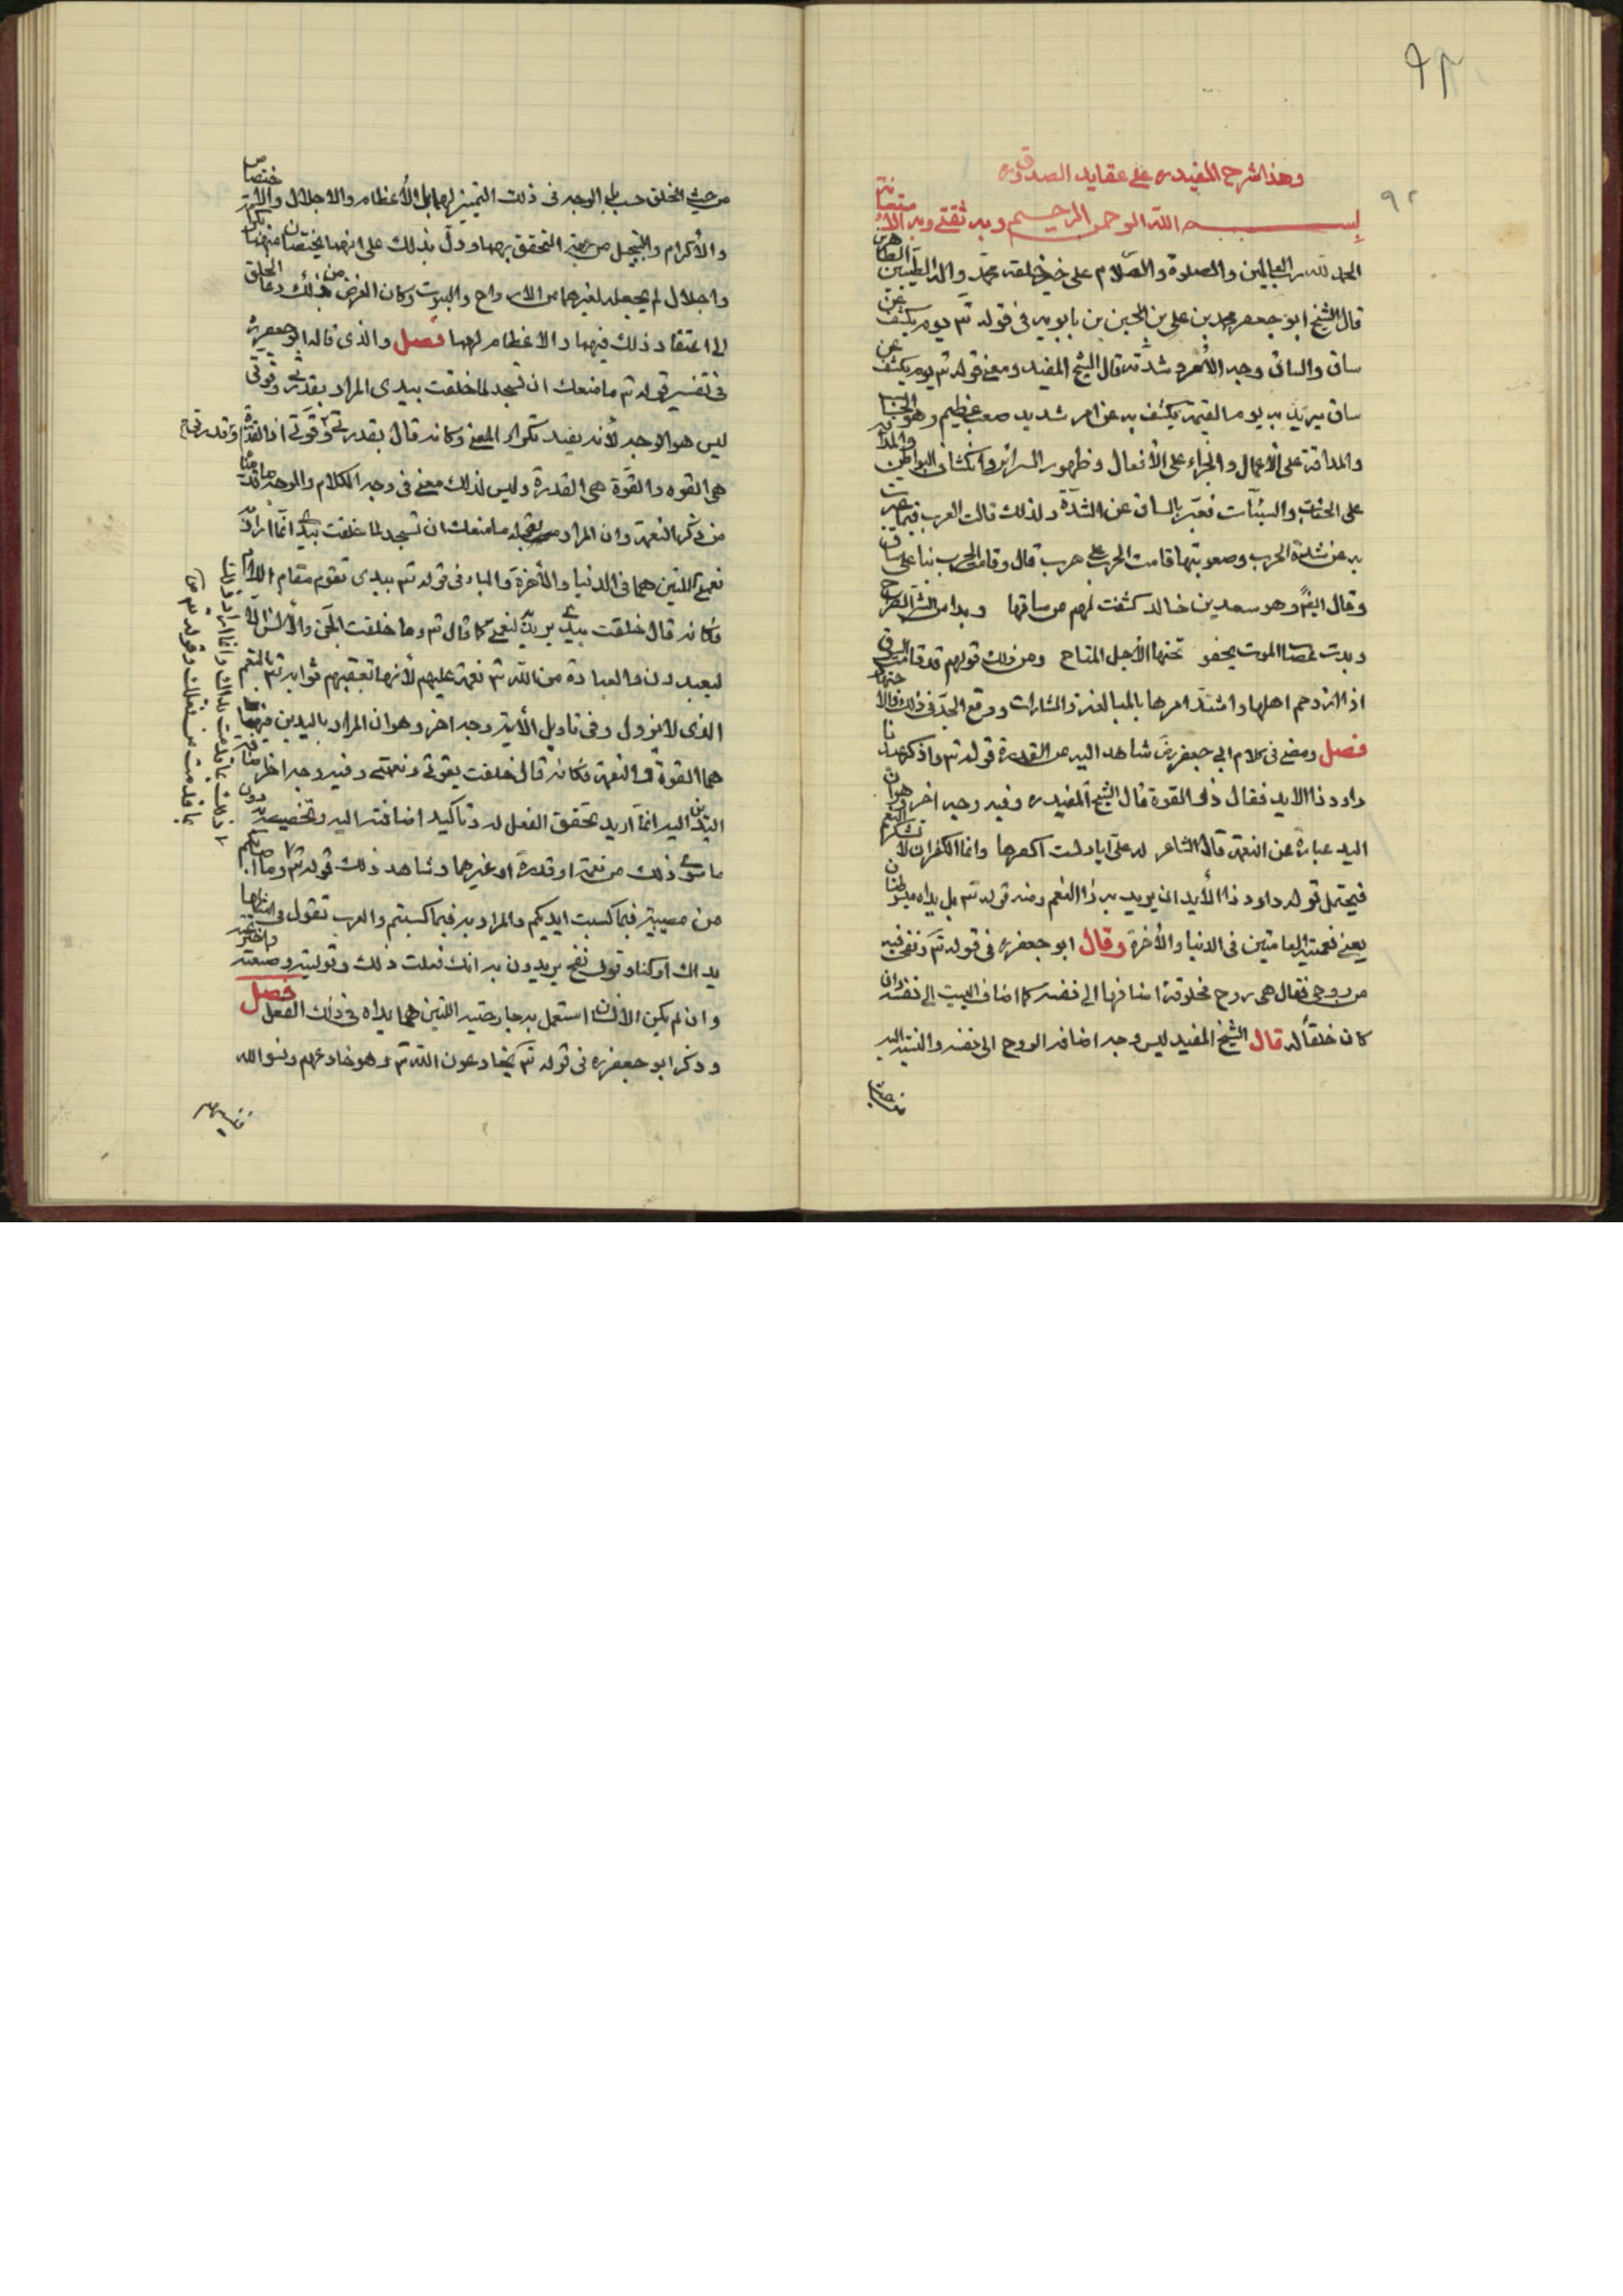 ٩٢
٩٢
وهذا شرح المفيد ره على عقايد الصدوق ره
بسم الله الرحمن الرحيم وبه ثقتي وبه الاستعانة
الحمد لله رب العالمين والصلوة والسلام على خير خلقه محمد وآله الطيبين الطاهرين
قال الشيخ ابو جعفر محمد بن علي بن الحسين بن بابويه في قوله تم يوم يكشف عن
ساق والساق وجه الأمر وشدته قال الشيخ المفيد ومعنى قوله تم يوم يكشف عن
ساق يريد به يوم القيمة يكشف به عن امر شديد صعب عظيم وهو الحساب
والمداقة على الأعمال والجزاء على الأفعال وظهور السرائر وانكشاف البواطن والمداقة
على الحسنات والسيئات فعبر بالساق عن الشدة ولذلك قالت العرب فيما عبرت
به عن شدة الحرب وصعوبتها قامت الحرب على قال وقامت الحرب بنا على ساق
وقال ايضً وهو سعد بن خالد كشفت لهم عن ساقها وبدا من الشر الصراح
وبدت الموت يخفو تحتها الأجل المتاح ومن ذلك قولهم قد قامت السوق
اذا ازدحم اهلها واشتد امرها بالمبالغة والمشارات ووقع الجد في ذلك
فصل ومضى في كلام ابي جعفر رض شاهد اليد عن القدرة قوله تم واذكر عبدنا
داود ذا الايد فقال ذو القوة قال الشيخ المفيد ره وفيه وجه اخر وهو ان
اليد عبارة عن النعمة قال الشاعر له على اياد لست اكفرها وانما الكفران لا تشكر النعم
فيحتمل قوله داود ذا الأيد ان يريد به ذا النعم ومنه قوله تم بل يداه مبسوطتان
يعني نعمتيه العامتين في الدنيا والأخرة وقال ابو جعفر ره في قوله تم ونفخت فيه
من روحي فقال هي روح مخلوقة اضافها الى نفسه كما اضاف البيت الى نفسه وان
كان خلقاً له قال الشيخ المفيد ليس وجه اضافة الروح الى نفسه والنسبة اليه
من حيث الخلق حسب بل الوجه في ذلك التمييز لهما بالأعظام والاجلال والأختصاص
والأكرام والتبجيل من جهة التحقق بهما ودل بذلك على انهما يختصان منه بكرامة
واجلال لم يجعله لغيرهما من الارواح والبيوت وكان الغرض من ذلك دعاء الخلق
الى اعتقاد ذلك فيهما والاعظام لهما فصل والذي قاله ابو جعفر ره
في تفسير قوله تم ما منعك ان تسجد لما خلقت بيدي المراد بقدرتي وقوتي
ليس هو الوجه لأنه يفيد تكرار المعنى وكانه قال بقدرتي وقدرتي او بقوتي وقوتي اذ القدرة
هي القوه والقوة هي القدرة وليس لذلك معنى في وجه الكلام والوجه ما قدمناه
من ذكر النعمة وان المراد بقوله ما منعك ان تسجد لما خلقت بيدي انما اراد به
نعمتي اللتين هما في الدنيا والأخرة والباء في قوله تم بيدي تقوم مقام اللام
فكانه قال خلقت بيدي يريد لنعمتي كما قال تم وما خلقت الجن والأنس الا
ليعبدون والعبادة من الله تم نعمة عليهم لأنها تعقبهم ثوابه تم بالنعم
الذي لا يزول وفي تاويل الأية وجه اخر وهو ان المراد باليدين فيهما
هما القوة والنعمة فكانه قال خلقت بقوتي ونعمتي وفيه وجه اخر
اليدين اليد انما اريد تحقق الفعل له وتاكيد اضافته اليه وتخصيصه به دون
ما سوى ذلك من نعمة او قدرة او غيرهما وشاهد ذلك قوله تم وما اصابكم
من مصيبة فبما كسبت ايديكم والمراد به فبما كسبتم والعرب تقول في امثالها
يداك اوكتا وفوك نفخ يريدون به انك فعلت ذلك وتوليته وصنعته واخترعته
وان لم يكن الأنسان استعمل به جارحتيه اللتين هما يداه في ذلك الفعل فصل
وذكر ابو جعفر ره في قوله تم يخادعون الله تم وهو خادعهم ونسوا الله
فنسيهم